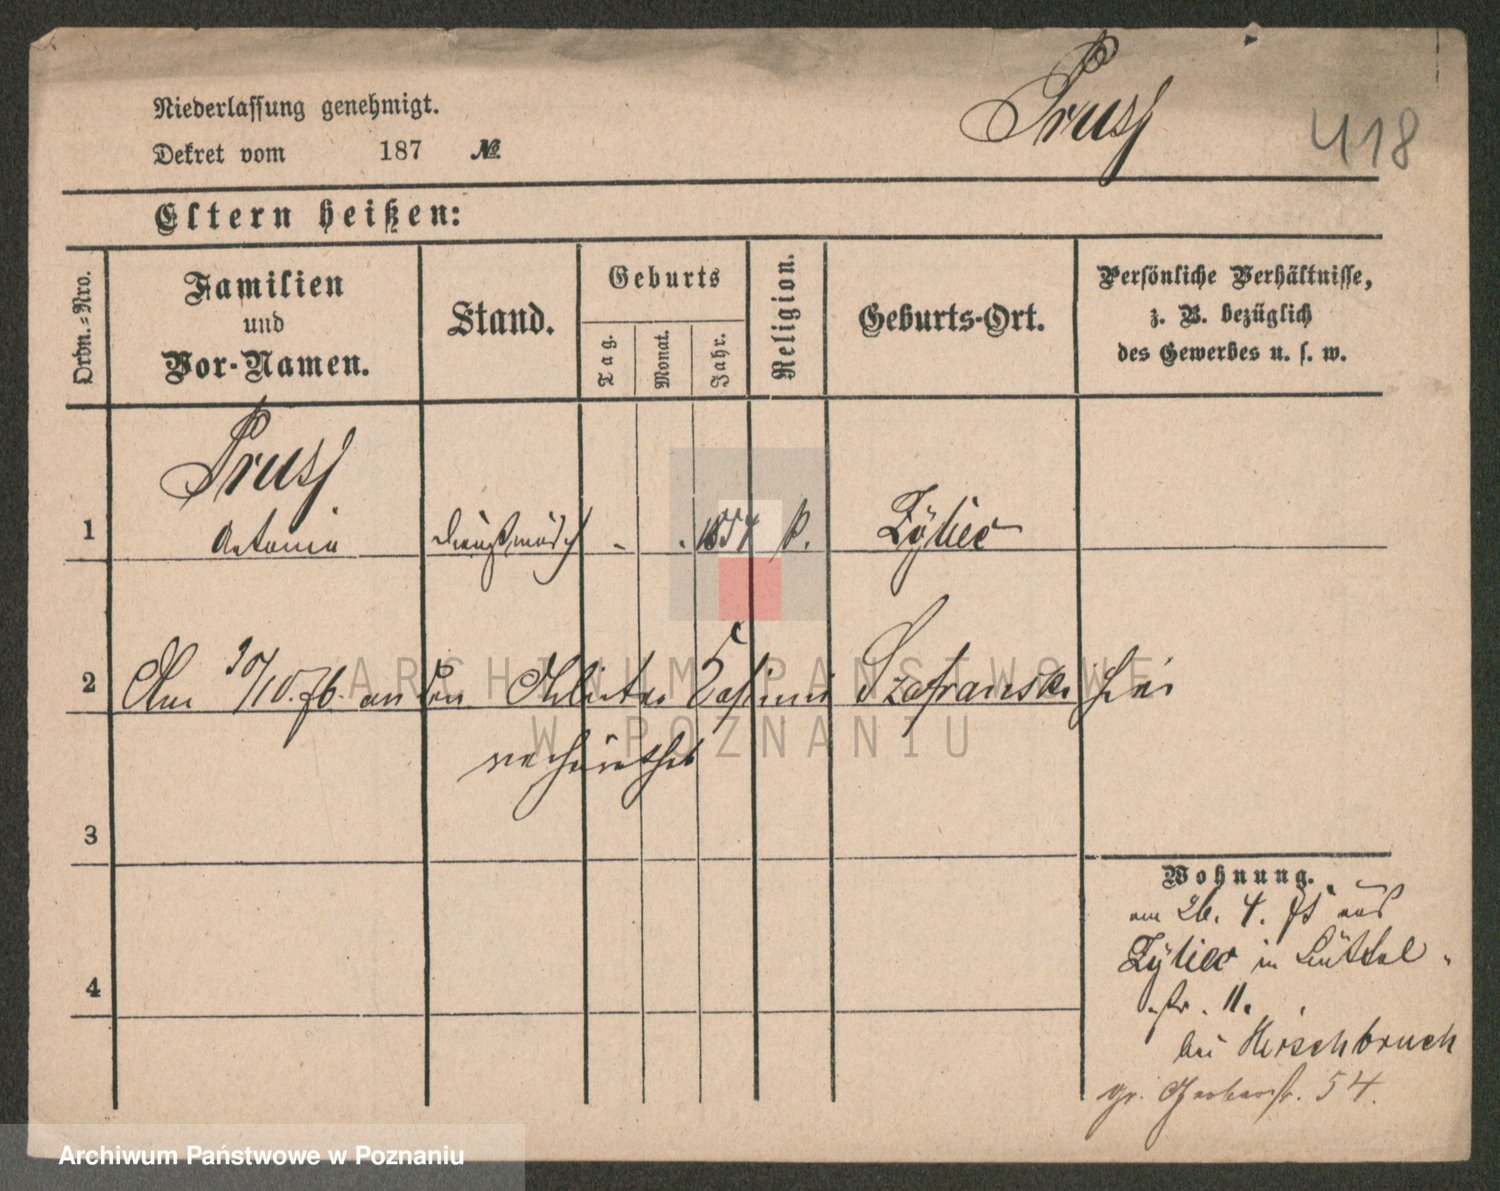 Niederlassung genehmigt.
Prusj
418
Dekret vom 187 №
Eltern heißen:
Ordn.-Nro.
Familien
und
Vor-Namen.
Stand.
Geburts
Tag.
Monat.
Jahr.
Religion.
Geburts-Ort.
Persönliche Verhältnisse,
z. B. bezüglich
des Gewerbes u. s. w.
Prusj
1 Antonia Dienstmädch - . 1854 k. Żyliec
2 Am 30/10. 76. an den Arbeiter Casimir Szafranski hier
verheirathet
3
4
Wohnung.
am 26. 4. 75 aus
Żyliec in Büttel-
str. 11.
bei Hirschbruch
gr. Gerberstr. 54.
ARCHIWUM PAŃSTWOWE
W POZNANIU
Archiwum Państwowe w Poznaniu